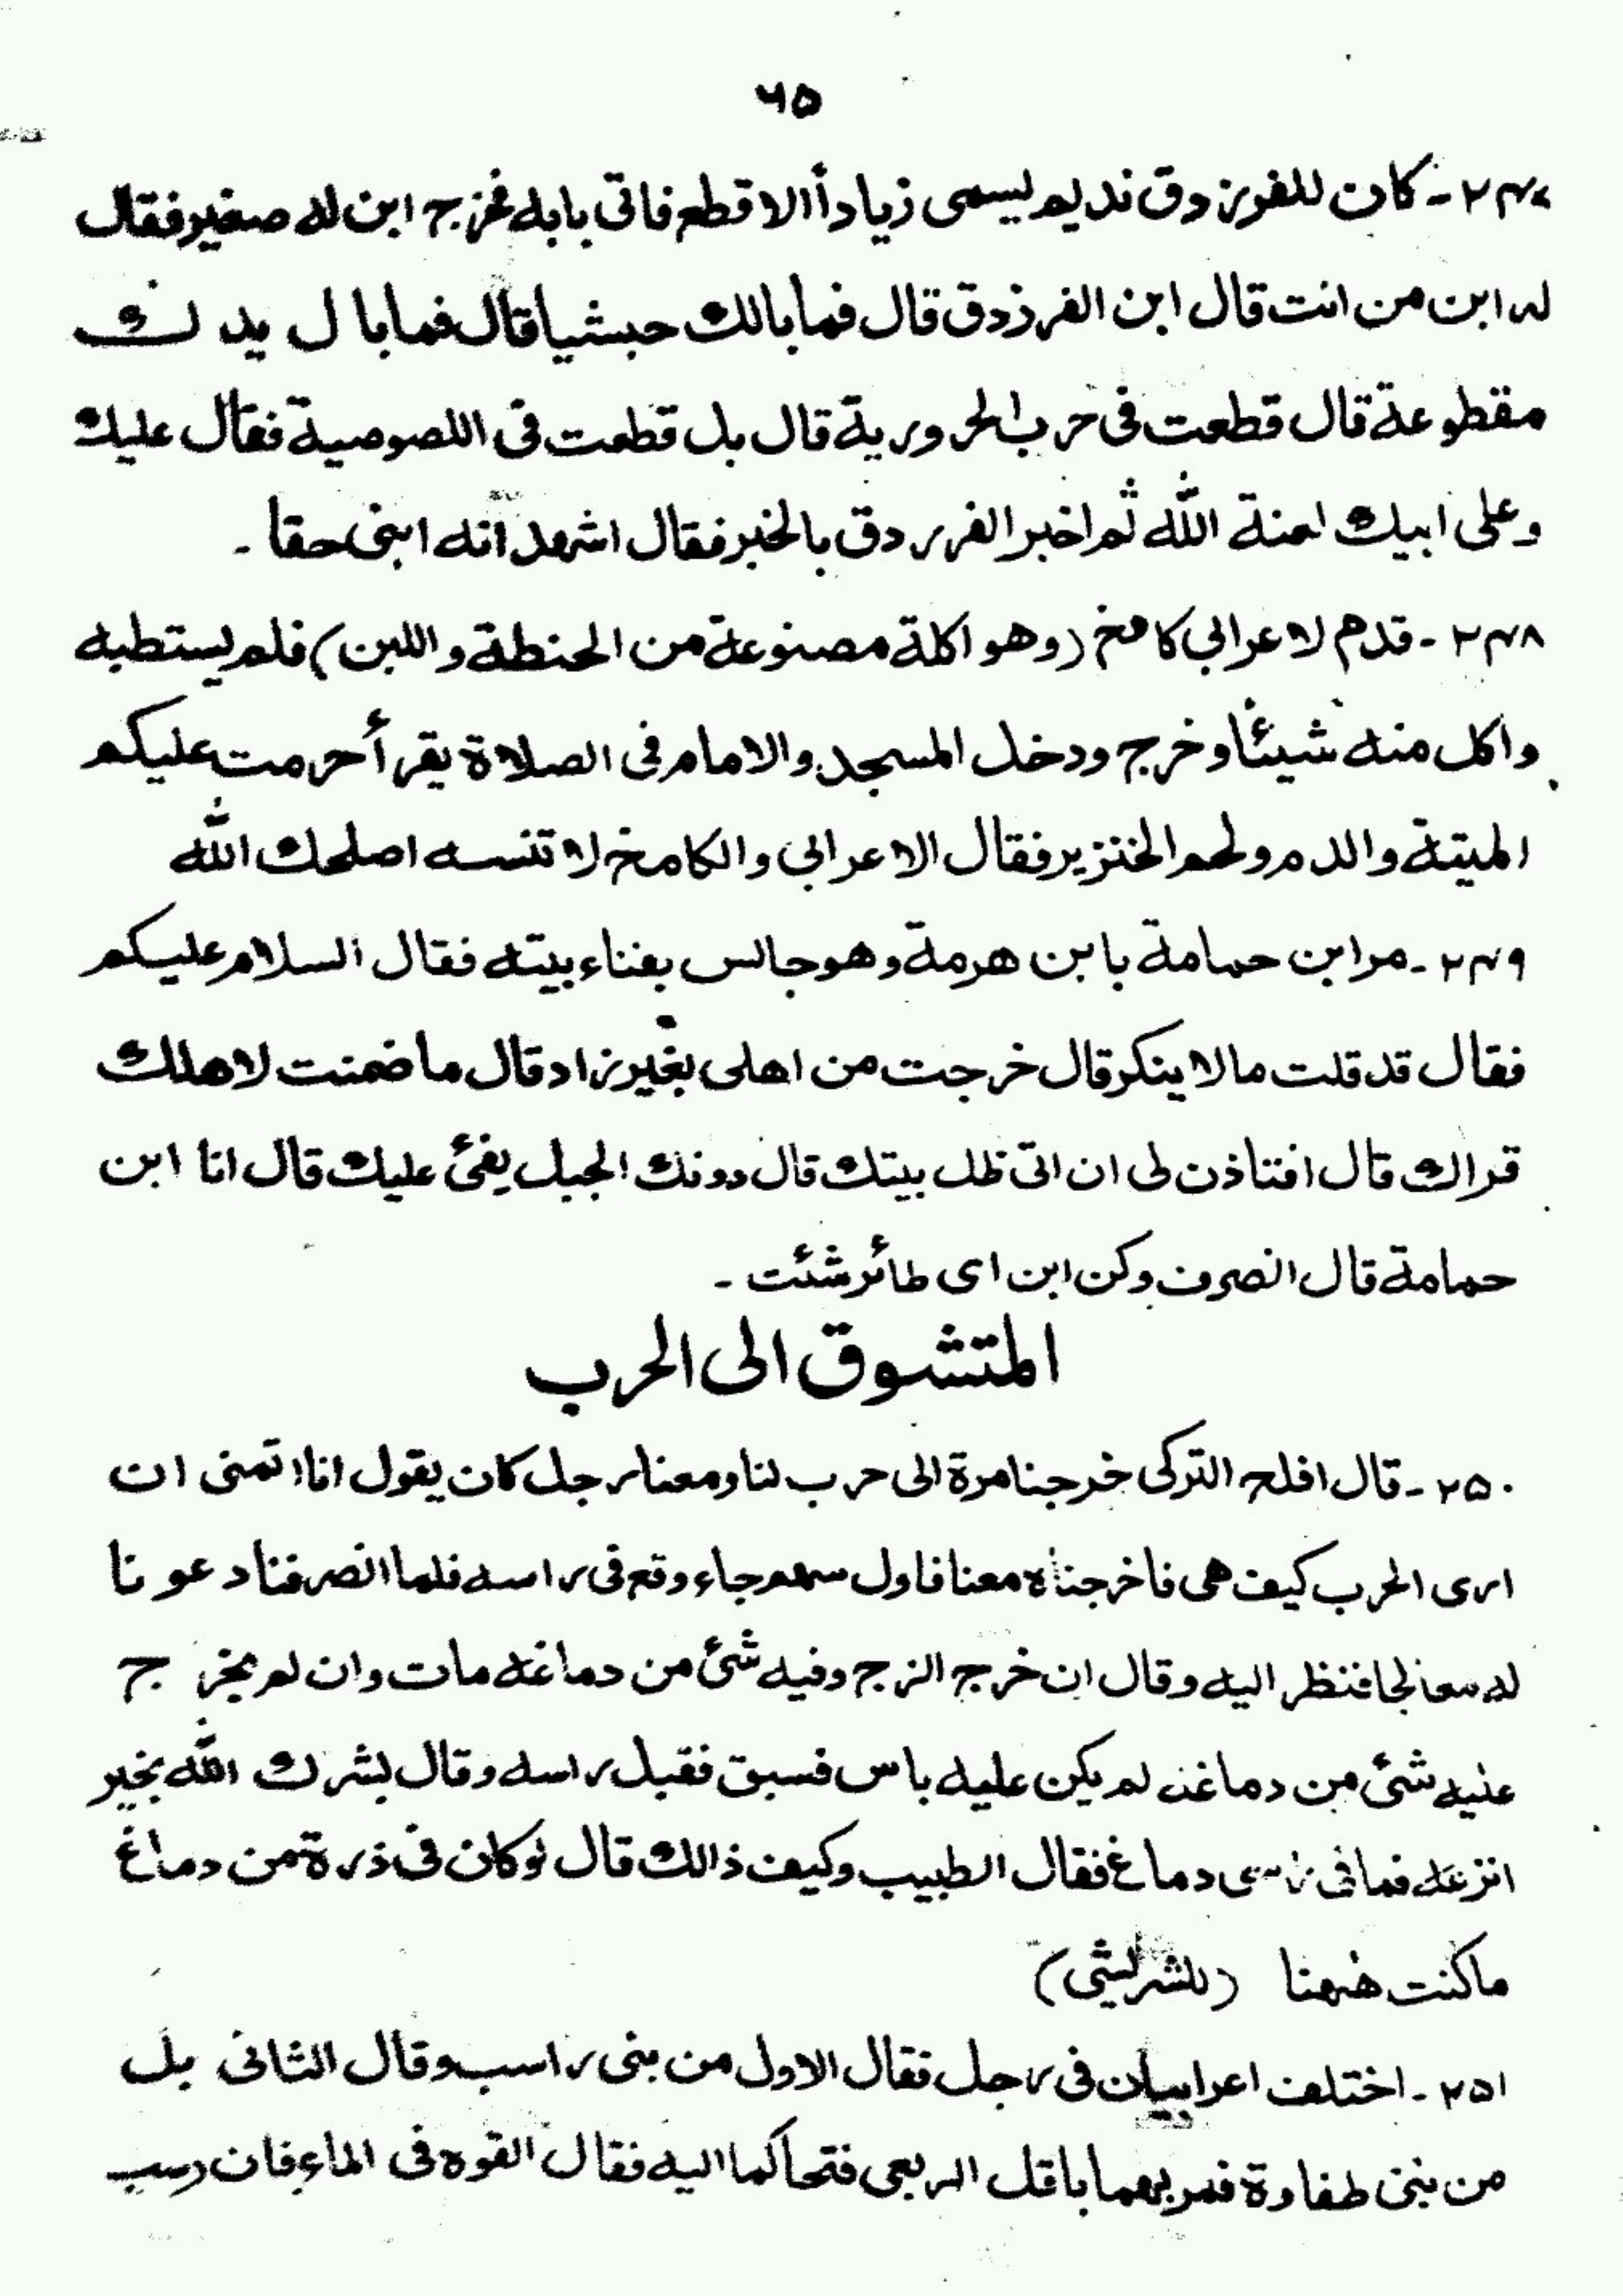 ٦٥
٢٤٧ - كان للفرزدق نديم يسمى زياداً الاقطع فاتى بابه فخرج ابن له صغير فقال
له ابن من انت قال ابن الفرزدق قال فما بالك حبشيا قال فما بال يدك
مقطوعة قال قطعت فى حرب الحرورية قال بل قطعت فى اللصوصية فقال عليك
وعلى ابيك لعنة الله ثم اخبر الفرزدق بالخبر فقال اشهد انه ابنى حقا -
٢٤٨ - قدم لاعرابي كامخ (وهو اكلة مصنوعة من الحنطة واللبن) فلم يستطبه
واكل منه شيئا وخرج ودخل المسجد والامام فى الصلاة يقرأ حرمت عليكم
الميتة والدم ولحم الخنزير فقال الاعرابي والكامخ لا تنسه اصلحك الله
٢٤٩ - مر ابن حمامة بابن هرمة وهو جالس بفناء بيته فقال السلام عليكم
فقال قد قلت ما لا ينكر قال خرجت من اهلى بغير زاد قال ما ضمنت لاهلك
قراك قال افتاذن لى ان اتى ظل بيتك قال دونك الجبل يفئ عليك قال انا ابن
حمامة قال انصرف وكن ابن اى طائر شئت -
المتشوق الى الحرب
٢٥٠ - قال افلح التركى خرجنا مرة الى حرب لنا ومعنا رجل كان يقول انا اتمنى ان
ارى الحرب كيف هى فاخرجناه معنا فاول سهم جاء وقع فى راسه فلما انصرفنا دعونا
له معالجا فنظر اليه وقال ان خرج الزج وفيه شئ من دماغه مات وان لم يخرج
عليه شئ من دماغه لم يكن عليه باس فسبق فقبل راسه وقال بشرك الله بخير
انزعه فما فى راسى دماغ فقال الطبيب وكيف ذالك قال لو كان فى ذرة من دماغ
ما كنت ههنا (للشريشى)
٢٥١ - اختلف اعرابيان فى رجل فقال الاول من بنى راسب وقال الثانى بل
من بنى طفاوة فمر بهما باقل الربعى فتحاكما اليه فقال القوه فى الماء فان رسب